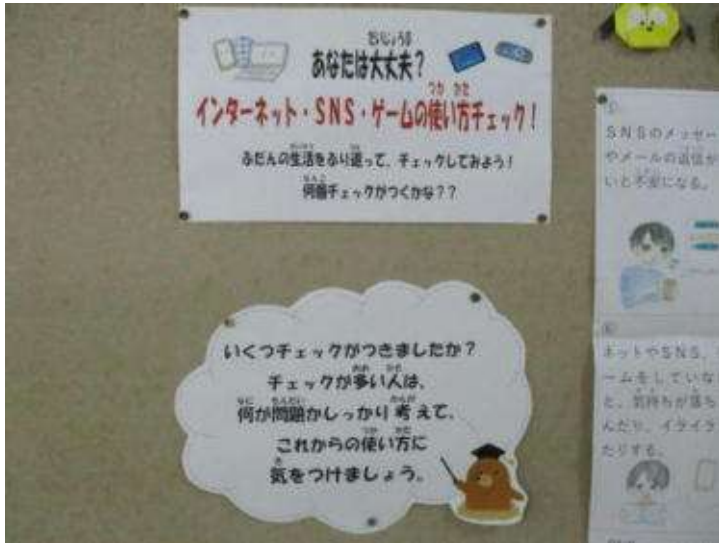 あなたは大丈夫？
インターネット・SNS・ゲームの使い方チェック！
ふだんの生活をふり返って、チェックしてみよう！
何個チェックがつくかな？？
いくつチェックがつきましたか？
チェックが多い人は、
何が問題かしっかり考えて、
これからの使い方に
気をつけましょう。
SNSのメッセー
やメールの返信が
いと不安になる。
ネットやSNS、
ームをしていな
と、気持ちが落ち
んだり、イライラ
たりする。